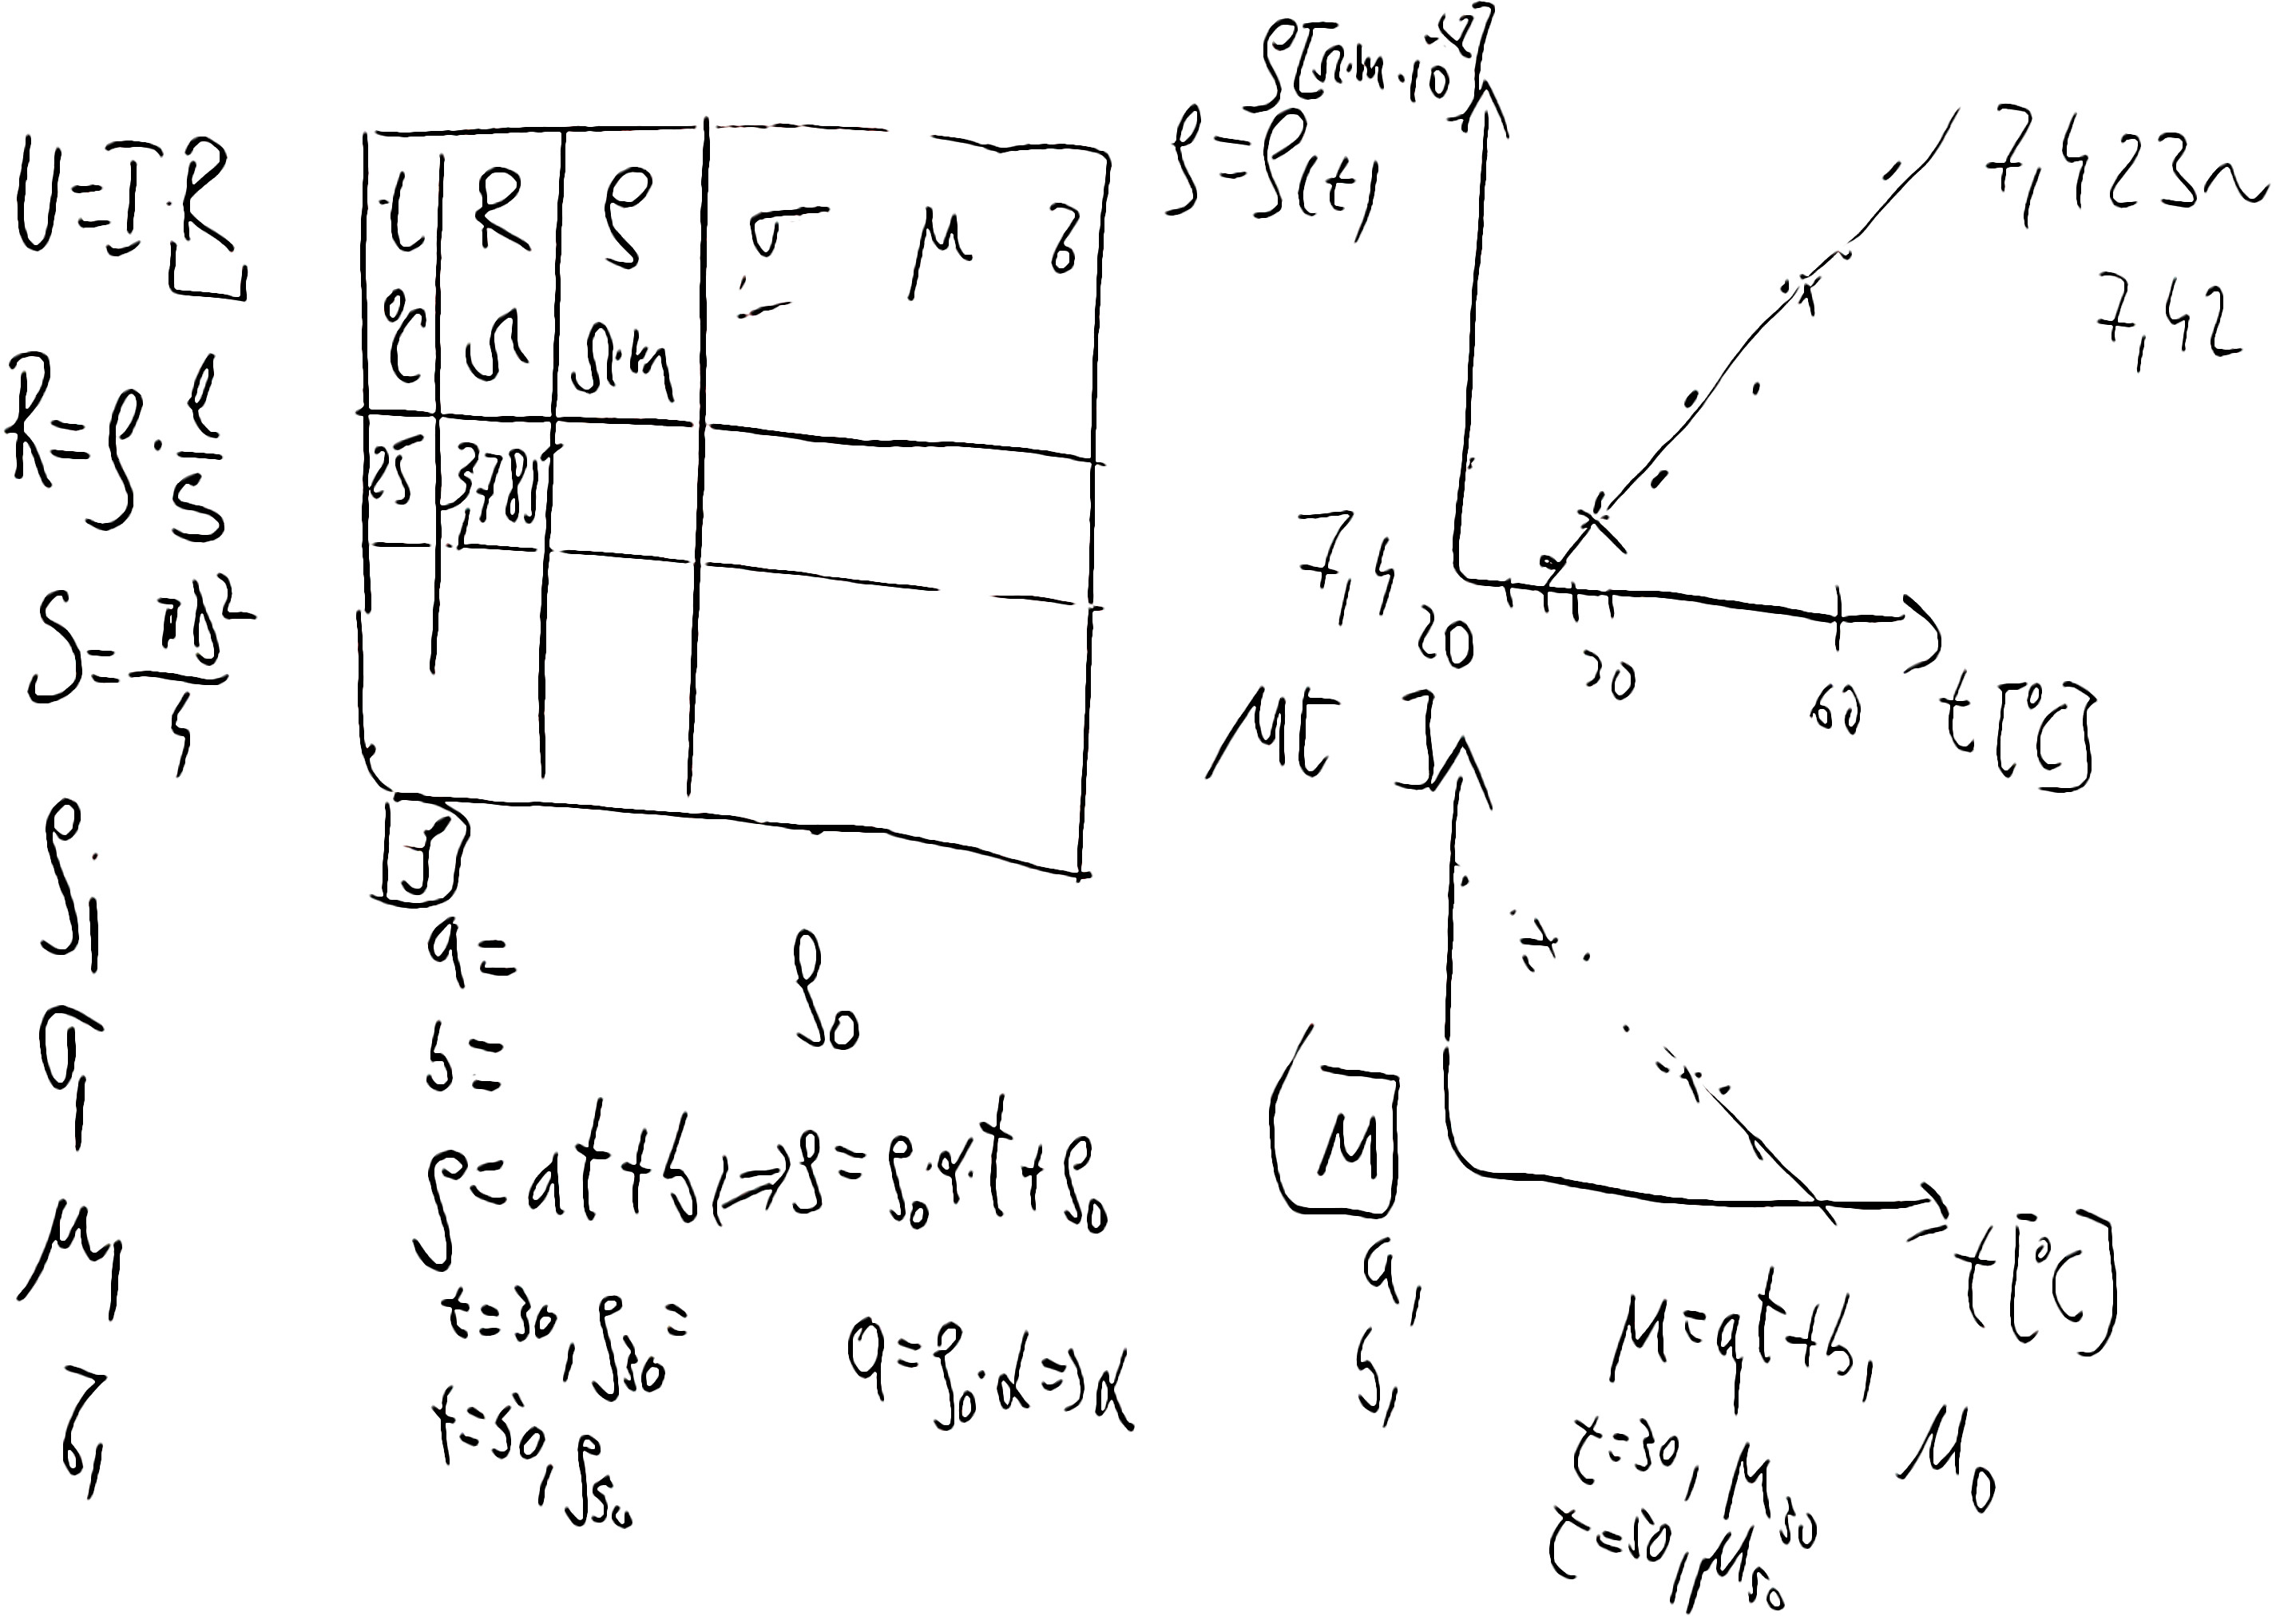 U=I·R
R=ρ·l/S
S=πd²/4
ρ,
q,
μ,
τ,
t R ρ σ μ δ
°C Ω Ω·m
25
ρ
a=
b=
ρ₀
ρ=at+b ρ=ρ₀·α·t+ρ₀
t=30, ρ₃₀=
t=50, ρ₅₀
a=ρ₀·α=>α
ρ[Ω·m·10
ρ=ρ(t)
7,423
7,42
7,4
20
30
60
t[°C]
μ[ ]
μ
a,
b,
t[°C]
μ=at+b,
t=30, μ₃₀
t=50, μ₅₀
μ₀